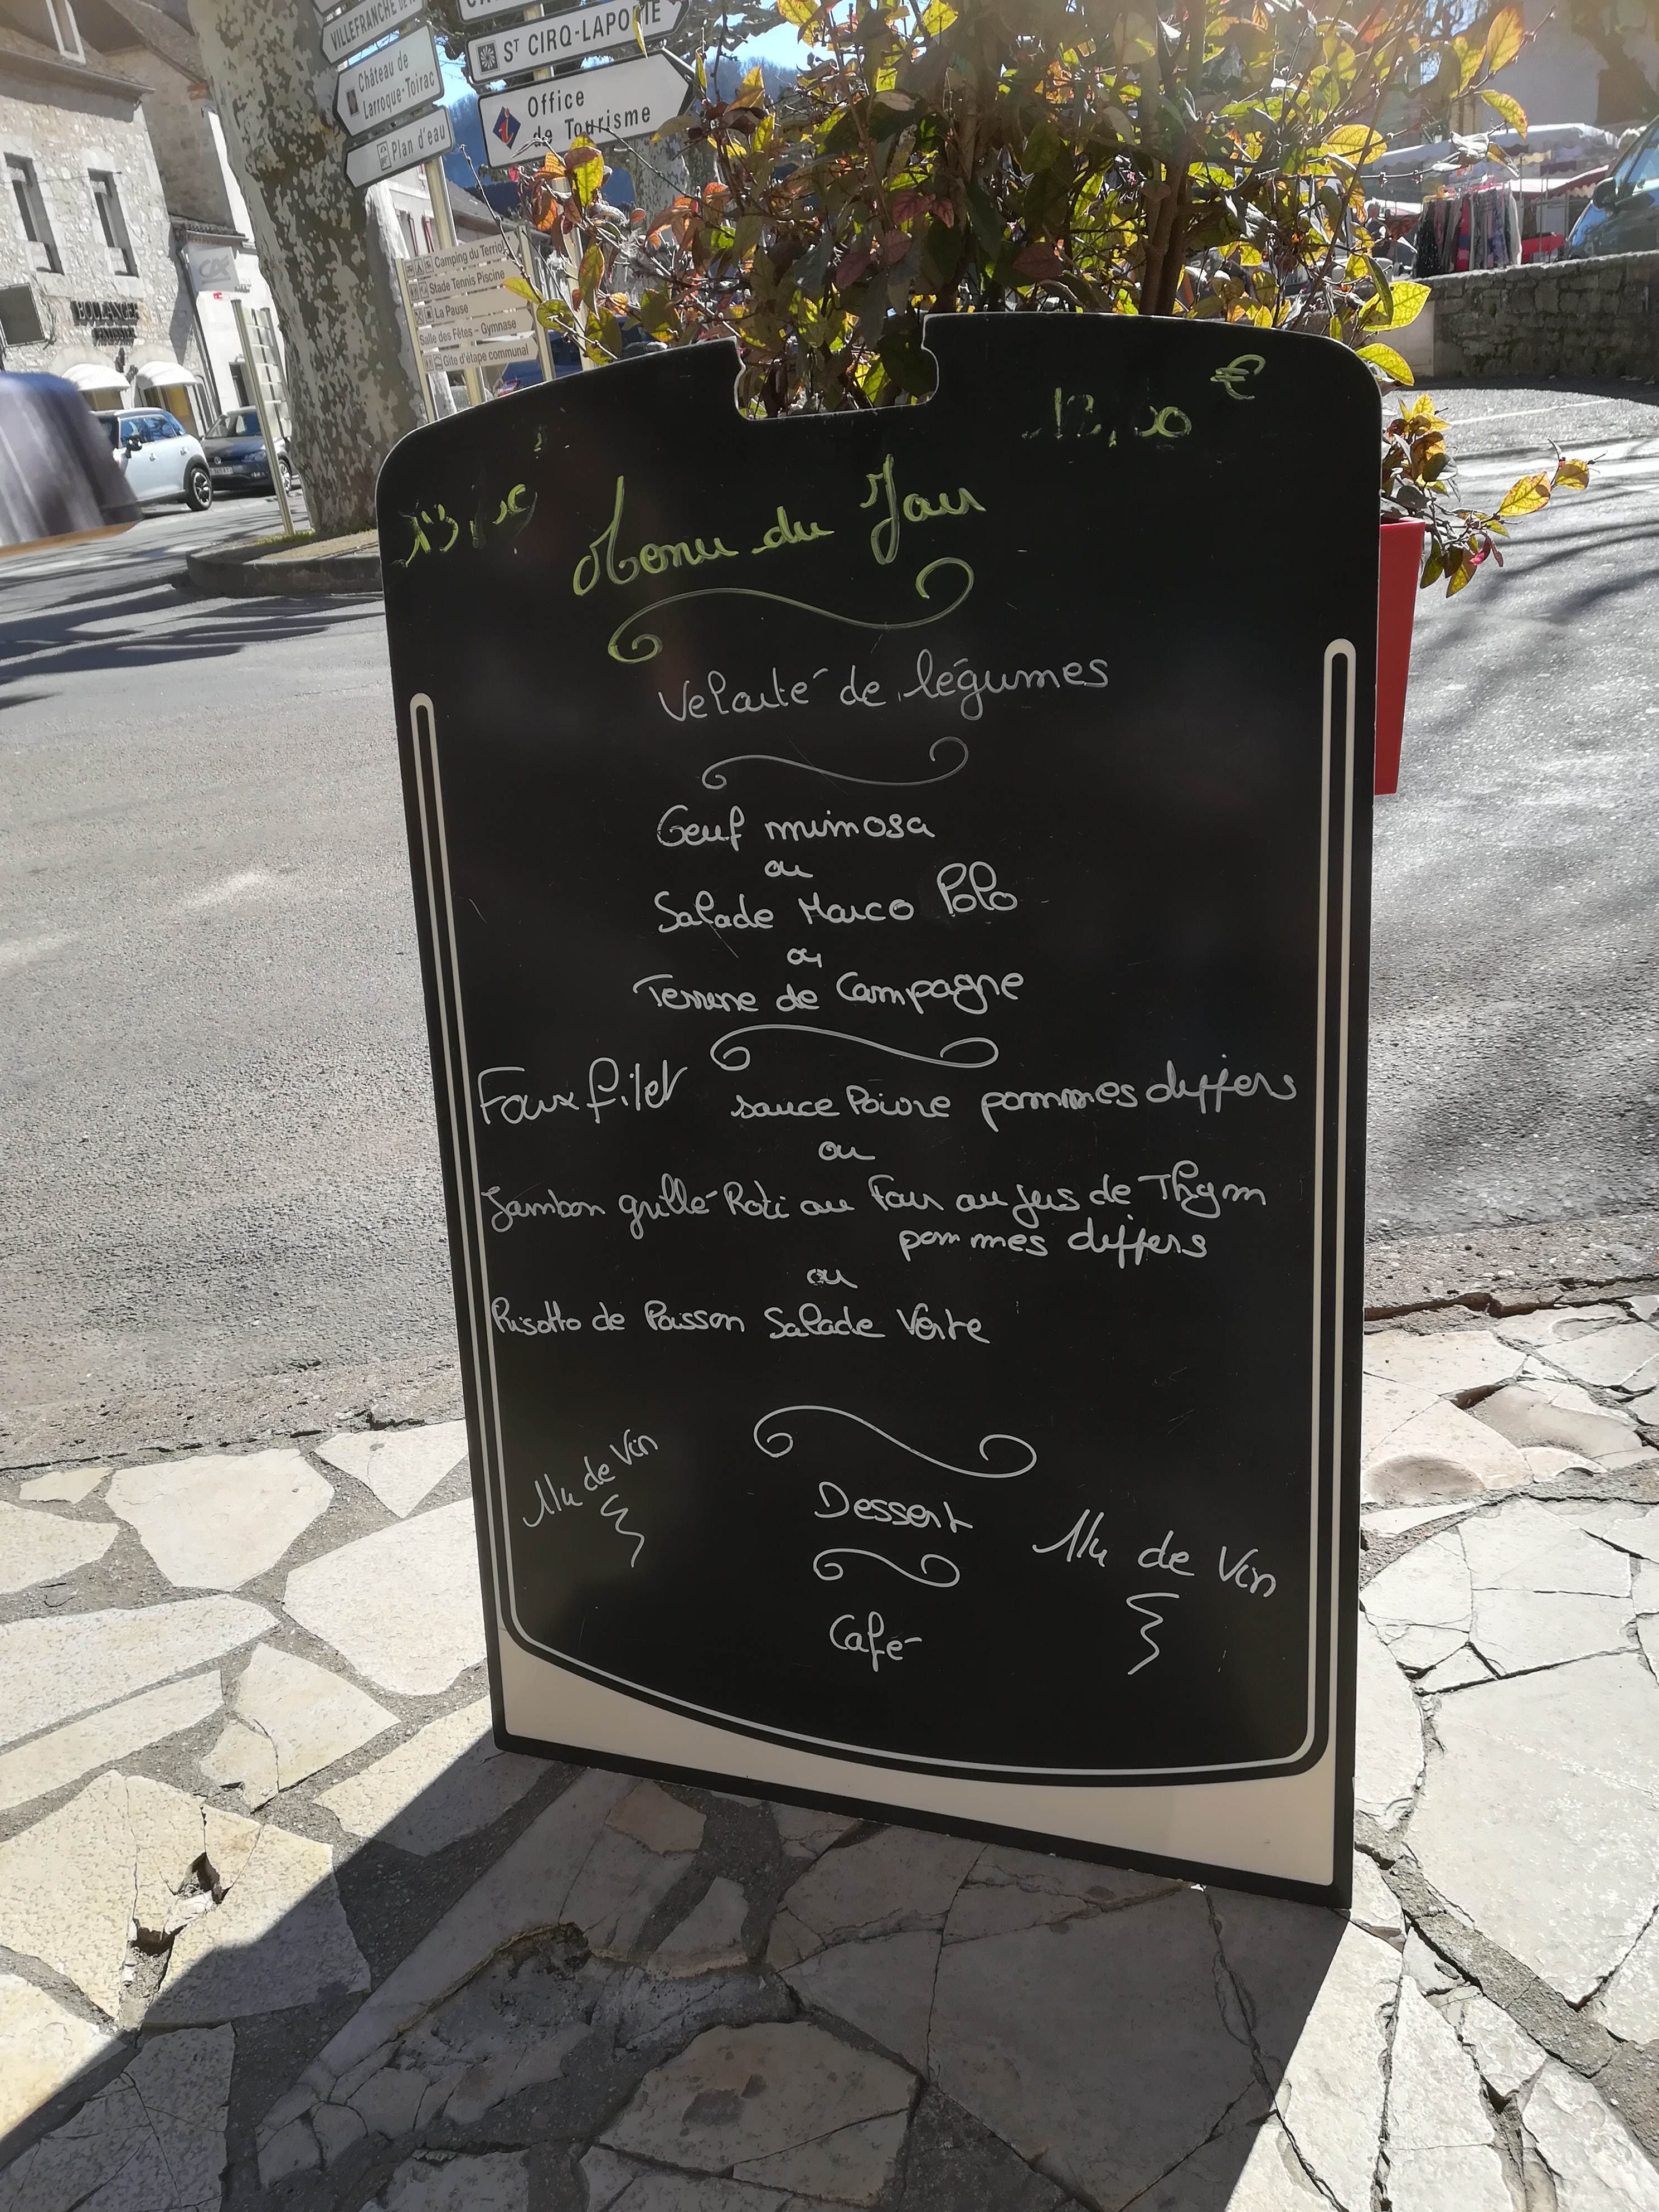 VILLEFRANCHE DE
Château de
Larroque-Toirac
Plan d'eau
ST CIRQ-LAPOPIE
Office
de Tourisme
Camping du Terriol
Stade Tennis Piscine
La Pause
Salle des Fêtes - Gymnase
Gîte d'étape communal
BOULANGER
€
Menu du Jour
Velouté de légumes
Oeuf mimosa
ou
Salade Marco Polo
ou
Terrine de Campagne
Faux filet sauce Poivre pommes differs
ou
Jambon grillé Roti au Four au jus de Thym
pommes differs
ou
Risotto de Poisson Salade Verte
1/4 de Vin
Dessert
1/4 de Vin
Café